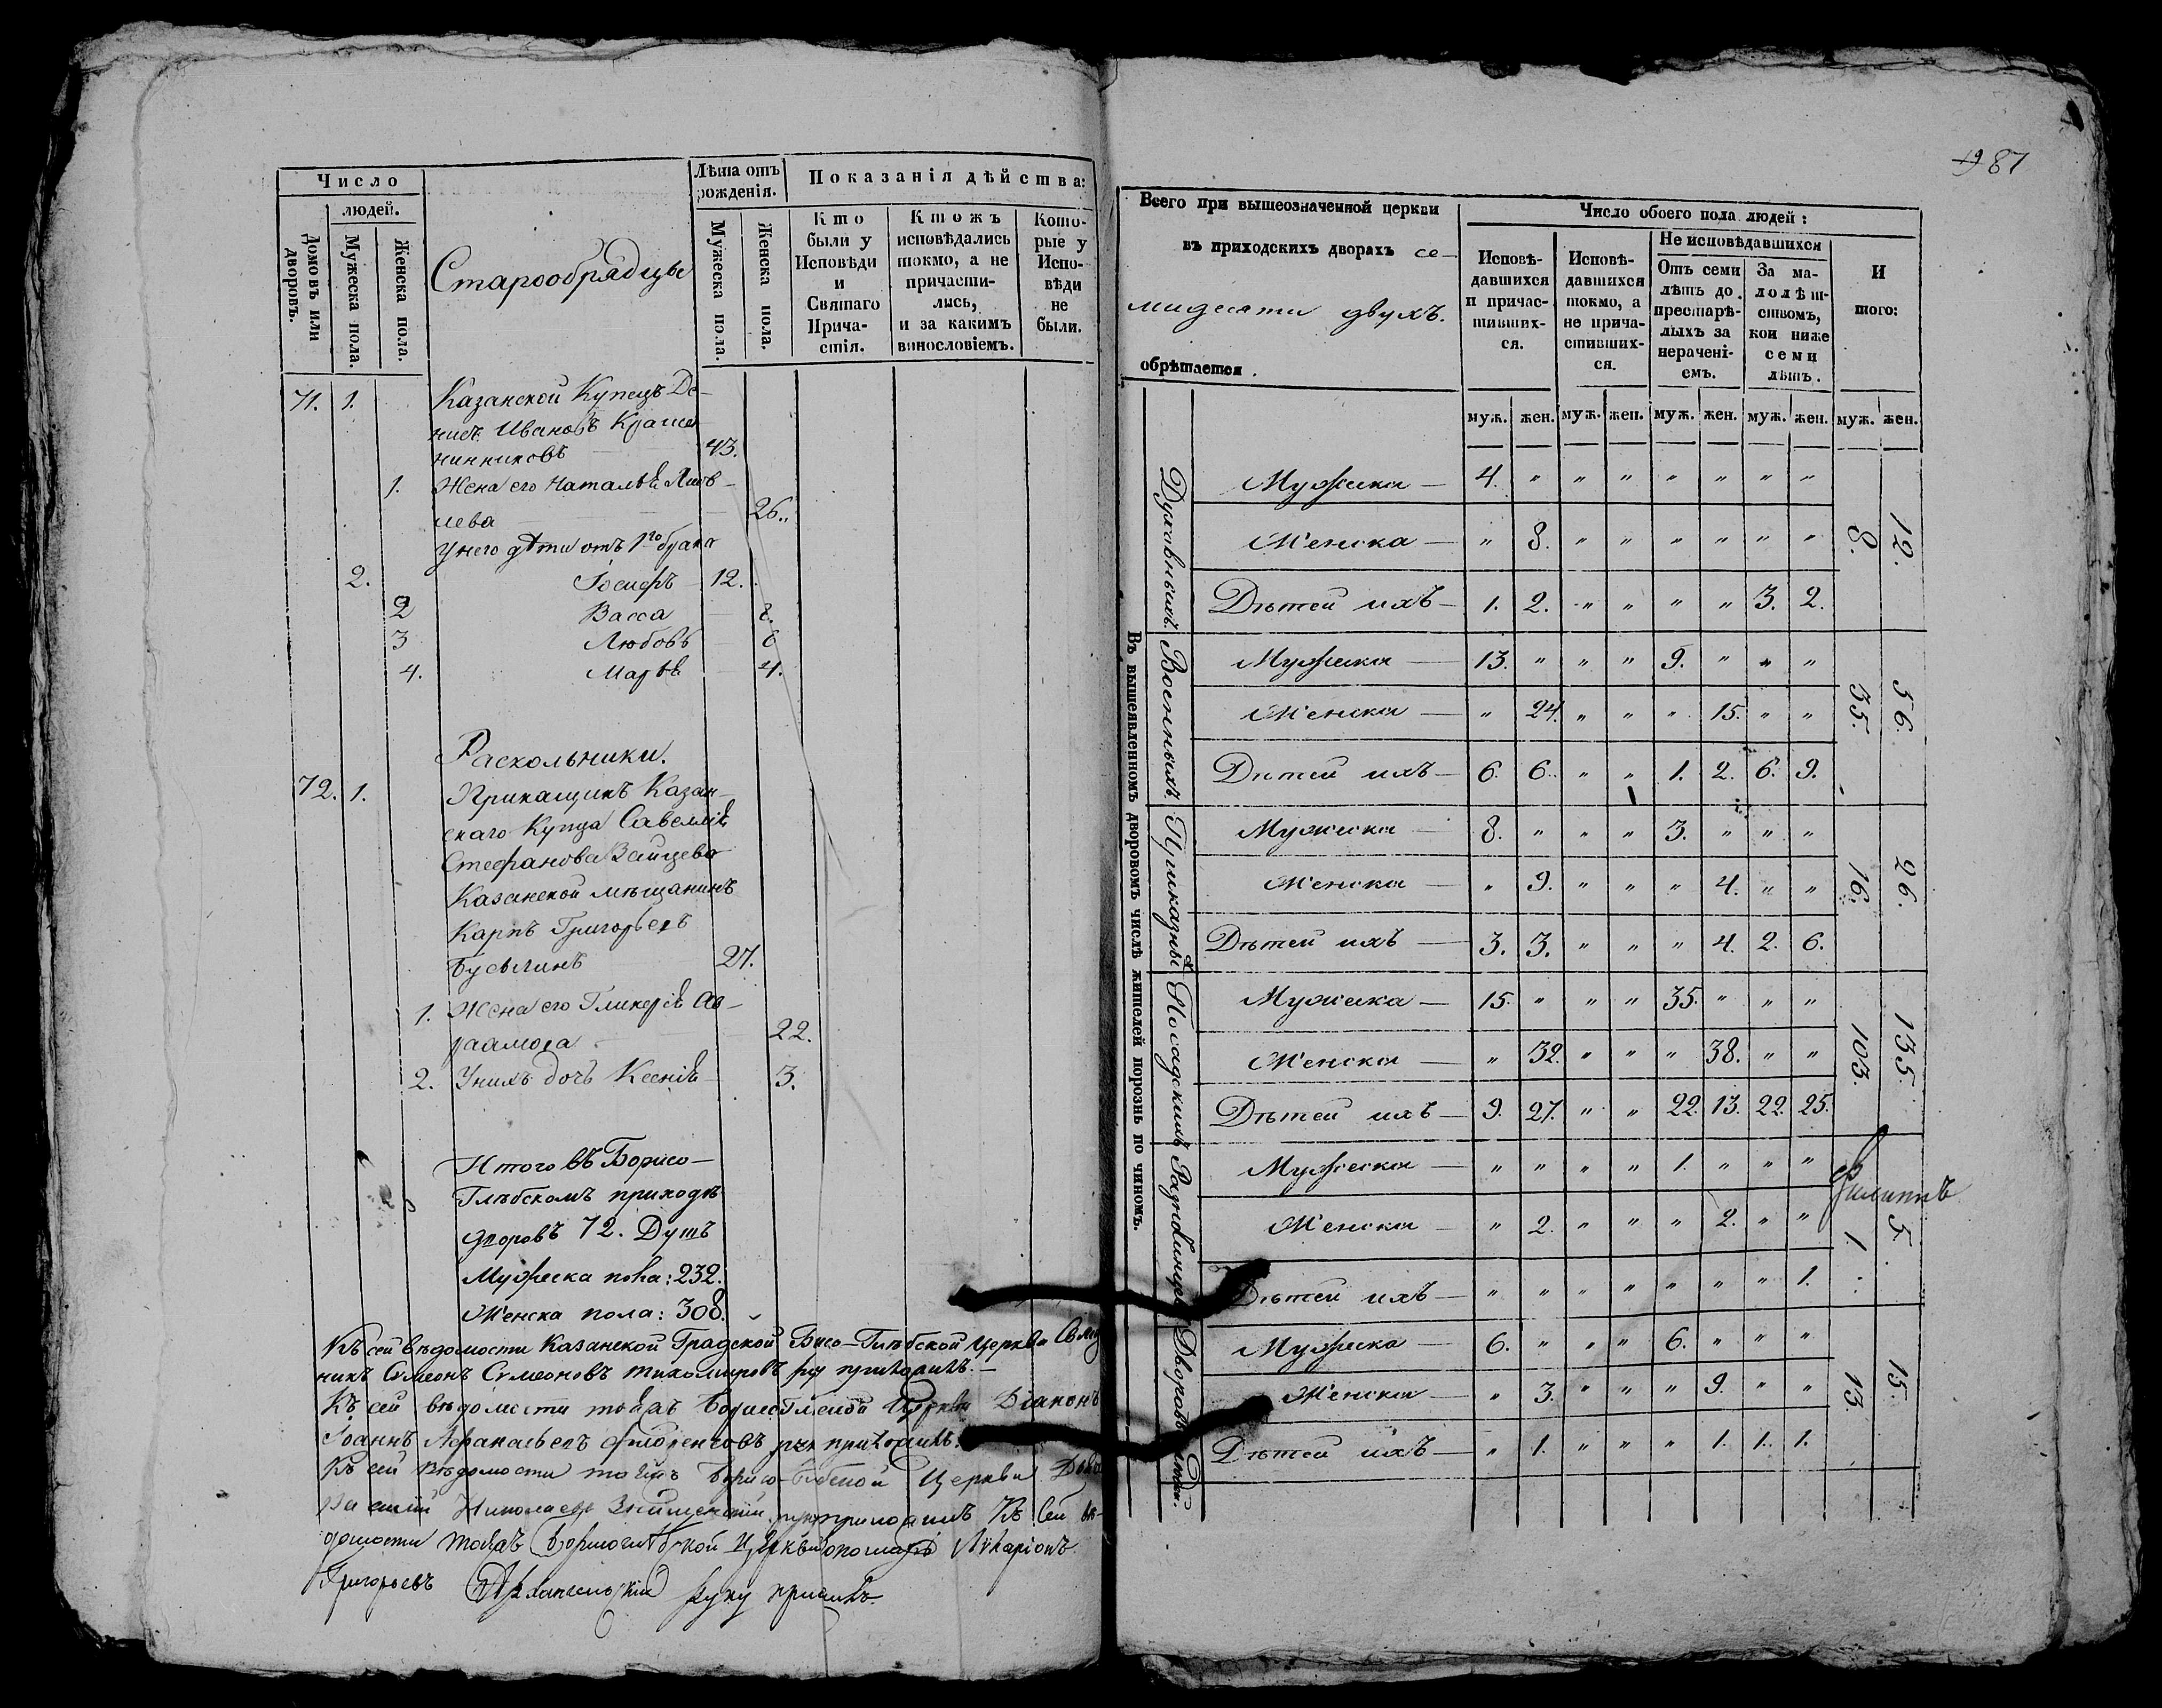 Число
людей.
Домовъ или дворовъ.
Мужеска пола.
Женска пола.
Старообрядцы
Лѣта отъ рожденія.
Мужеска пола.
Женска пола.
Показанія дѣйства:
Кто были у Исповѣди и Святаго Причастія.
Ктожъ исповѣдались токмо, а не причастились, и за какимъ винословіемъ.
Которые у Исповѣди не были.
71. 1. Казанской Купецъ Де-
нисъ Ивановъ Краше-
нинниковъ 43.
1. Жена его Наталья Яков-
лева 26.
У него дѣти отъ 1го брака
2. Іосифъ 12.
2 Васса 8.
3 Любовь 6
4. Марья 4.
Раскольники.
72. 1. Прикащикъ Казан-
скаго Купца Савелія
Стефанова Зайцева
Казанской мѣщанинъ
Карпъ Григорьевъ
27.
1. Жена его Гликерія Ав-
раамова 22.
2. У нихъ дочь Ксенія 3.
Итого въ Борисо-
Глѣбскомъ приходѣ
дворовъ 72. Душъ
Мужеска пола: 232.
Женска пола: 308.
Къ сей вѣдомости Казанской Градской Бисо-Глѣбской Церкви
Сѵмеонъ Сѵмеоновъ Тихомировъ руку приложилъ.
Къ сей вѣдомости тояжъ Церкви Діаконъ
Іоаннъ Афанасьевъ руку приложилъ.
Къ сей вѣдомости тояжъ Борисо- Церкви
Николаевъ руку приложилъ Къ сей вѣ-
домости тояжъ Церкви пономарь Иларіонъ
Григорьевъ руку приложилъ.
87
Всего при вышеозначенной церкви
въ приходскихъ дворахъ се-
мидесяти двухъ.
обрѣтается
Число обоего пола людей:
Исповѣдавшихся и причастившихся.
Исповѣдавшихся токмо, а не причастившихся.
Не исповѣдавшихся
Отъ семи лѣтъ до престарѣлыхъ за нерачені-емъ.
За малолѣтствомъ, кои ниже семи лѣтъ.
Итого:
муж. жен. муж. жен. муж. жен. муж. жен. муж. жен.
Въ вышеявленномъ дворовомъ числѣ жителей порознь по чиномъ.
Духовныхъ.
Мужеска 4. " " " " " " "
Женска " 8. " " " " " "
Дѣтей ихъ 1. 2. " " " " 3. 2.
8. 12.
Военныхъ.
Мужеска 13. " " " 9. " " "
Женска " 24. " " " 15. " "
Дѣтей ихъ 6. 6. " " 1. 2. 6. 9.
35. 56.
Приказныхъ
Мужеска 8. " " " 3. " " "
Женска " 9. " " " 4. " "
Дѣтей ихъ 3. 3. " " " 4. 2. 6.
16. 26.
Посадскихъ
Мужеска 15. " " " 35. " " "
Женска " 32. " " " 38. " "
Дѣтей ихъ 9. 27. " " 22. 13. 22. 25.
103. 135.
Разночинцевъ
Мужеска " " " " 1. " " "
Женска " 2. " " " 2. " "
Дѣтей ихъ " " " " " " " 1.
1. 5.
Филиппъ
Мужеска 6. " " " 6. " " "
Женска " 3. " " " 9. " "
Дѣтей ихъ " 1. " " " 1. 1. 1.
13 15.